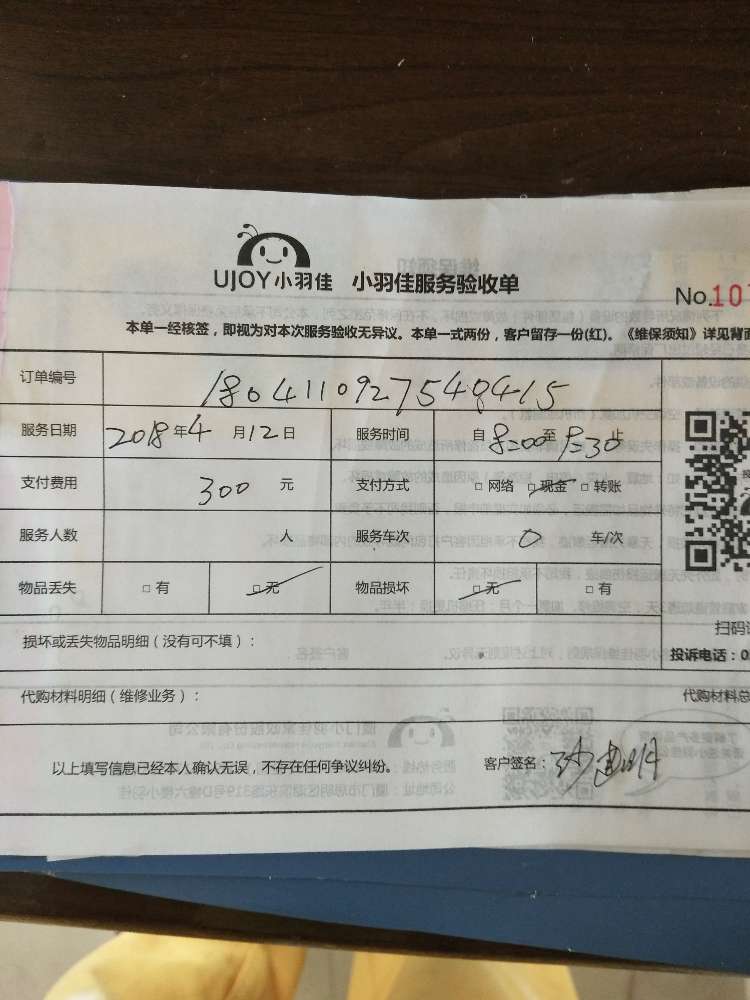 UJOY小羽佳 小羽佳服务验收单
No.10
本单一经核签，即视为对本次服务验收无异议。本单一式两份，客户留存一份(红)。《维保须知》详见背面
订单编号 180411092754
服务日期 2018年4月12日 服务时间 自8:00至 止
支付费用 300元 支付方式 □网络 □现金 □转账
服务人数 人 服务车次 0 车/次
物品丢失 □有 □无 物品损坏 □无 □有
扫码
损坏或丢失物品明细（没有可不填）：
投诉电话：0
代购材料明细（维修业务）： 代购材料总
以上填写信息已经本人确认无误，不存在任何争议纠纷。 客户签名： 建明